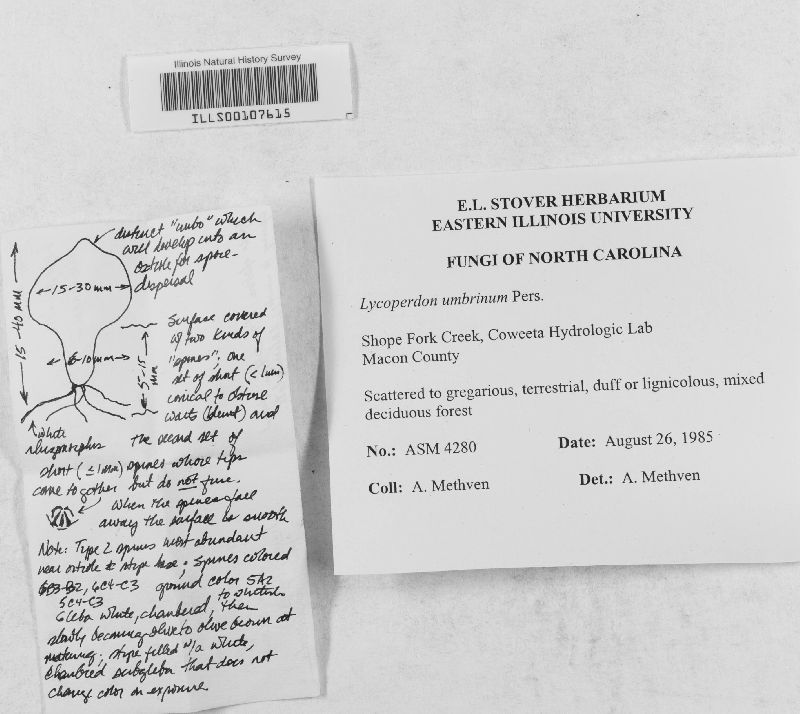 Illinois Natural History Survey
ILLS00107615
E.L. STOVER HERBARIUM
EASTERN ILLINOIS UNIVERSITY
FUNGI OF NORTH CAROLINA
Lycoperdon umbrinum Pers.
Shope Fork Creek, Coweeta Hydrologic Lab
Macon County
Scattered to gregarious, terrestrial, duff or lignicolous, mixed
deciduous forest
No.: ASM 4280 Date: August 26, 1985
Coll: A. Methven Det.: A. Methven
distinct "umbo" which
will develop into an
ostiole for spore-
dispersal
←15-30mm→
15-40 mm
6-10mm
5-15
mm
Surface covered
w/ two kinds of
"spines"; one
set of short (<1mm)
conical to obtuse
warts (blunt) and
white
rhizomorphs
the second set of
short (≤1mm) spines whose tips
come together but do not fuse.
When the spines fall
away the surface is smooth
Note: Type 2 spines most abundant
near ostiole & stipe base; spines colored
6C4-C3 ground color 5A2
5C4-C3 to whitish
Gleba white, chambered, then
slowly becoming olive to olive brown at
maturing; stipe filled w/a white,
chambered subgleba that does not
change color on exposure